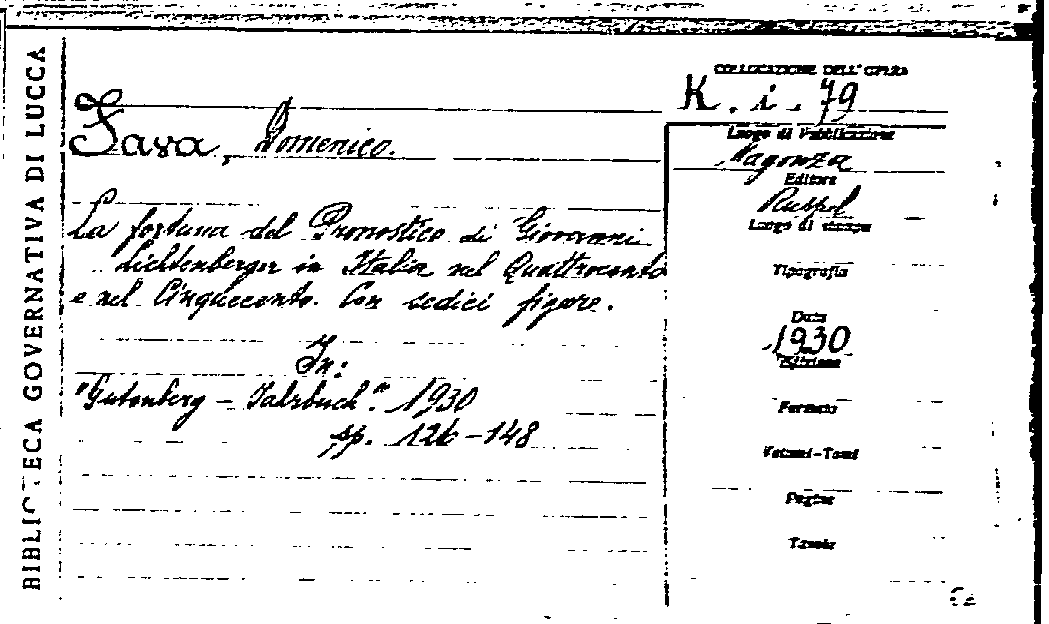 BIBLIOTECA GOVERNATIVA DI LUCCA
COLLOCAZIONE DELL'OPERA
K. i. 79
Fava, Domenico.
La fortuna del Pronostico di Giovanni
Lichtenberger in Italia nel Quattrocento
e nel Cinquecento. Con sedici figure.
In:
"Gutenberg - Jahrbuch". 1930
pp. 126-148
Luogo di Pubblicazione
Magonza
Editore
Ruppel
Luogo di stampa
Tipografia
Data
1930
Edizione
Formato
Volumi-Tomi
Pagine
Tavole